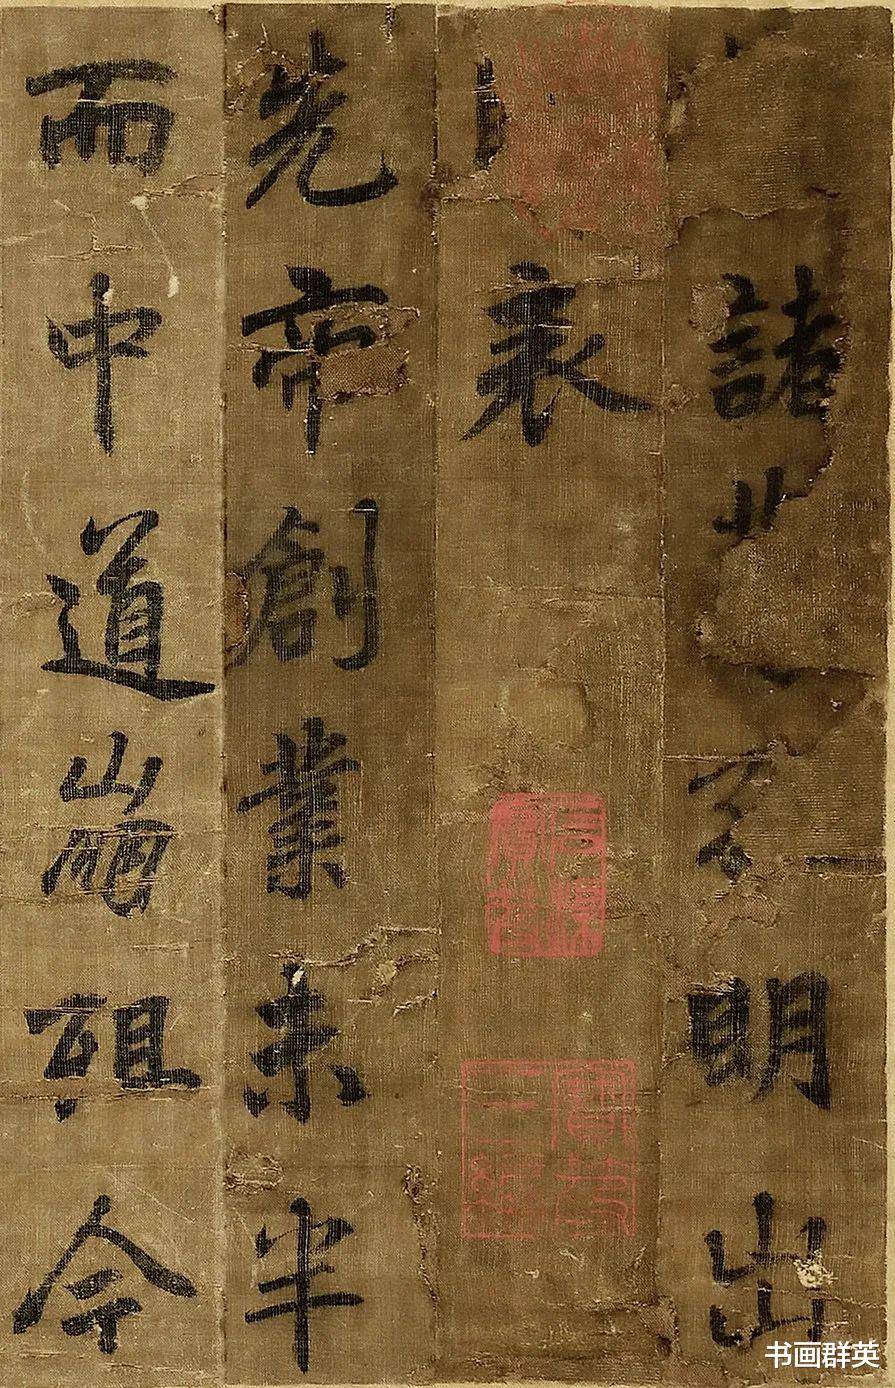 諸孔明出
表
先帝創業未半
而中道崩殂今
书画群英